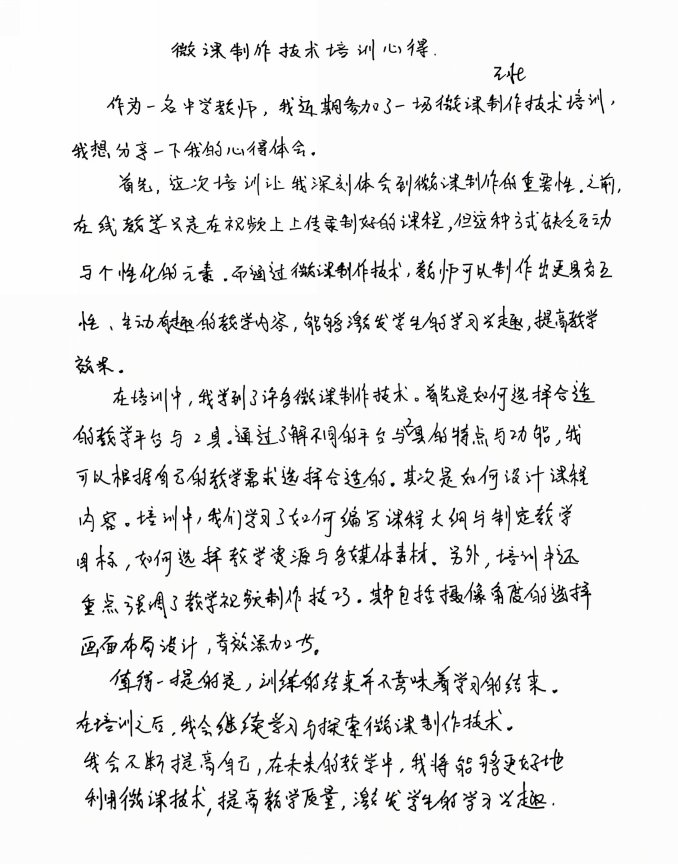 微课制作技术培训心得.
作为一名中学教师，我近期参加了一场微课制作技术培训，
我想分享一下我的心得体会。
首先，这次培训让我深刻体会到微课制作的重要性.之前，
在线教学只是在视频上上传录制好的课程，但这种方式缺乏互动
与个性化的元素.而通过微课制作技术，教师可以制作出更具有互
性、生动有趣的教学内容，能够激发学生的学习兴趣，提高教学
效果。
在培训中，我学到了许多微课制作技术。首先是如何选择合适
的教学平台与工具。通过了解不同的平台与工具的特点与功能，我
可以根据自己的教学需求选择合适的。其次是如何设计课程
内容。培训中，我们学习了如何编写课程大纲与制定教学
目标，如何选择教学资源与多媒体素材.另外，培训中还
重点强调了教学视频制作技巧.其中包括摄像角度的选择
画面布局设计，音效添加等。
值得一提的是，训练的结束并不意味着学习的结束。
在培训之后，我会继续学习与探索微课制作技术。
我会不断提高自己，在未来的教学中，我将能够更好地
利用微课技术，提高教学质量，激发学生的学习兴趣.